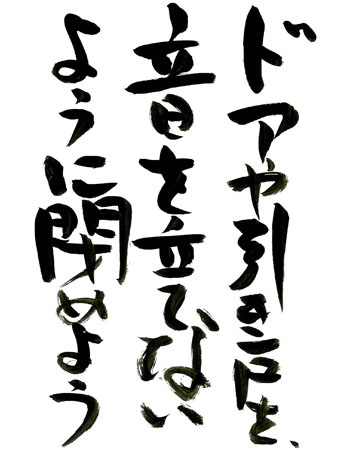 ドアや引き戸を、
音を立てない
ように閉めよう